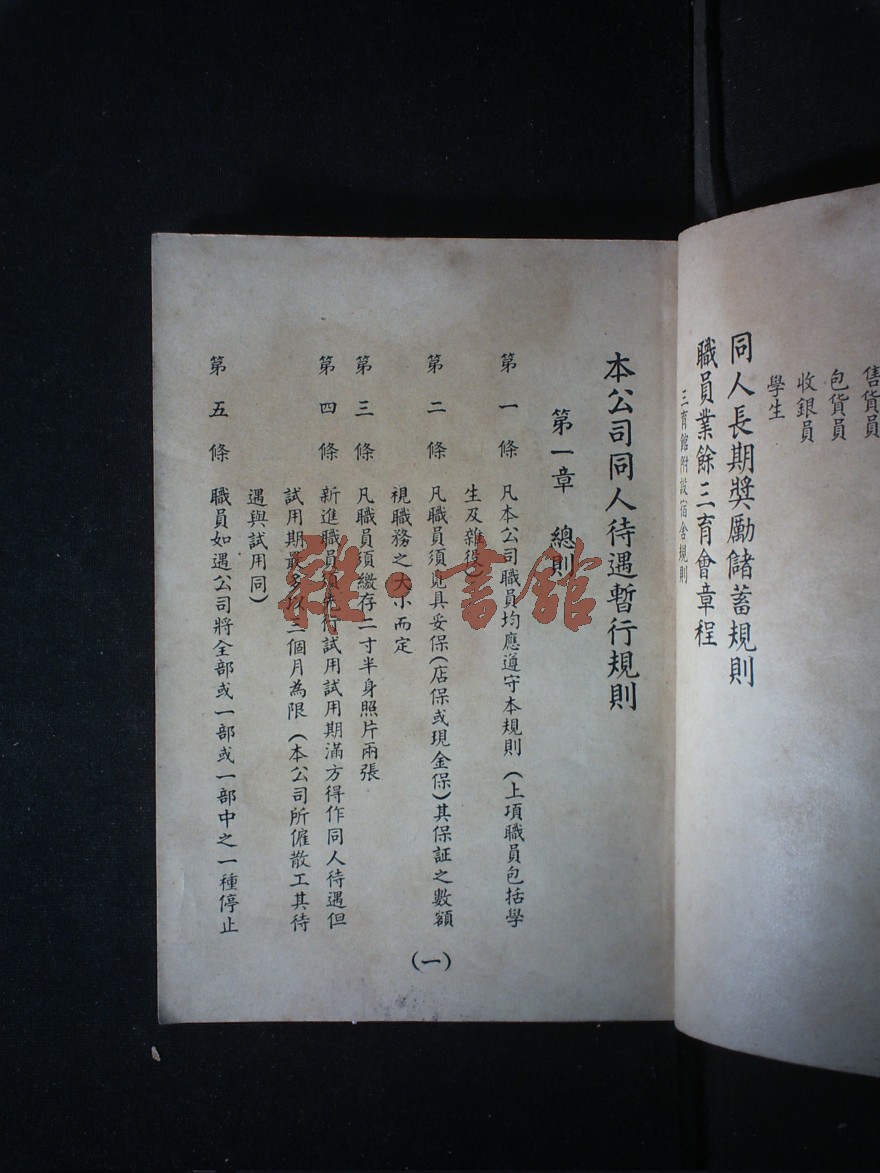 售貨員
包貨員
收銀員
學生
同人長期獎勵儲蓄規則
職員業餘三育會章程
三育館附設宿舍規則
本公司同人待遇暫行規則
第一章 總則
第一條 凡本公司職員均應遵守本規則(上項職員包括學
生及雜役)
第二條 凡職員須覓具妥保(店保或現金保)其保証之數額
視職務之大小而定
第三條 凡職員須繳存二寸半身照片兩張
第四條 新進職員須先行試用試用期滿方得作同人待遇但
試用期最多以三個月為限(本公司所僱散工其待
遇與試用同)
第五條 職員如遇公司將全部或一部或一部中之一種停止
(一)
雜·書館